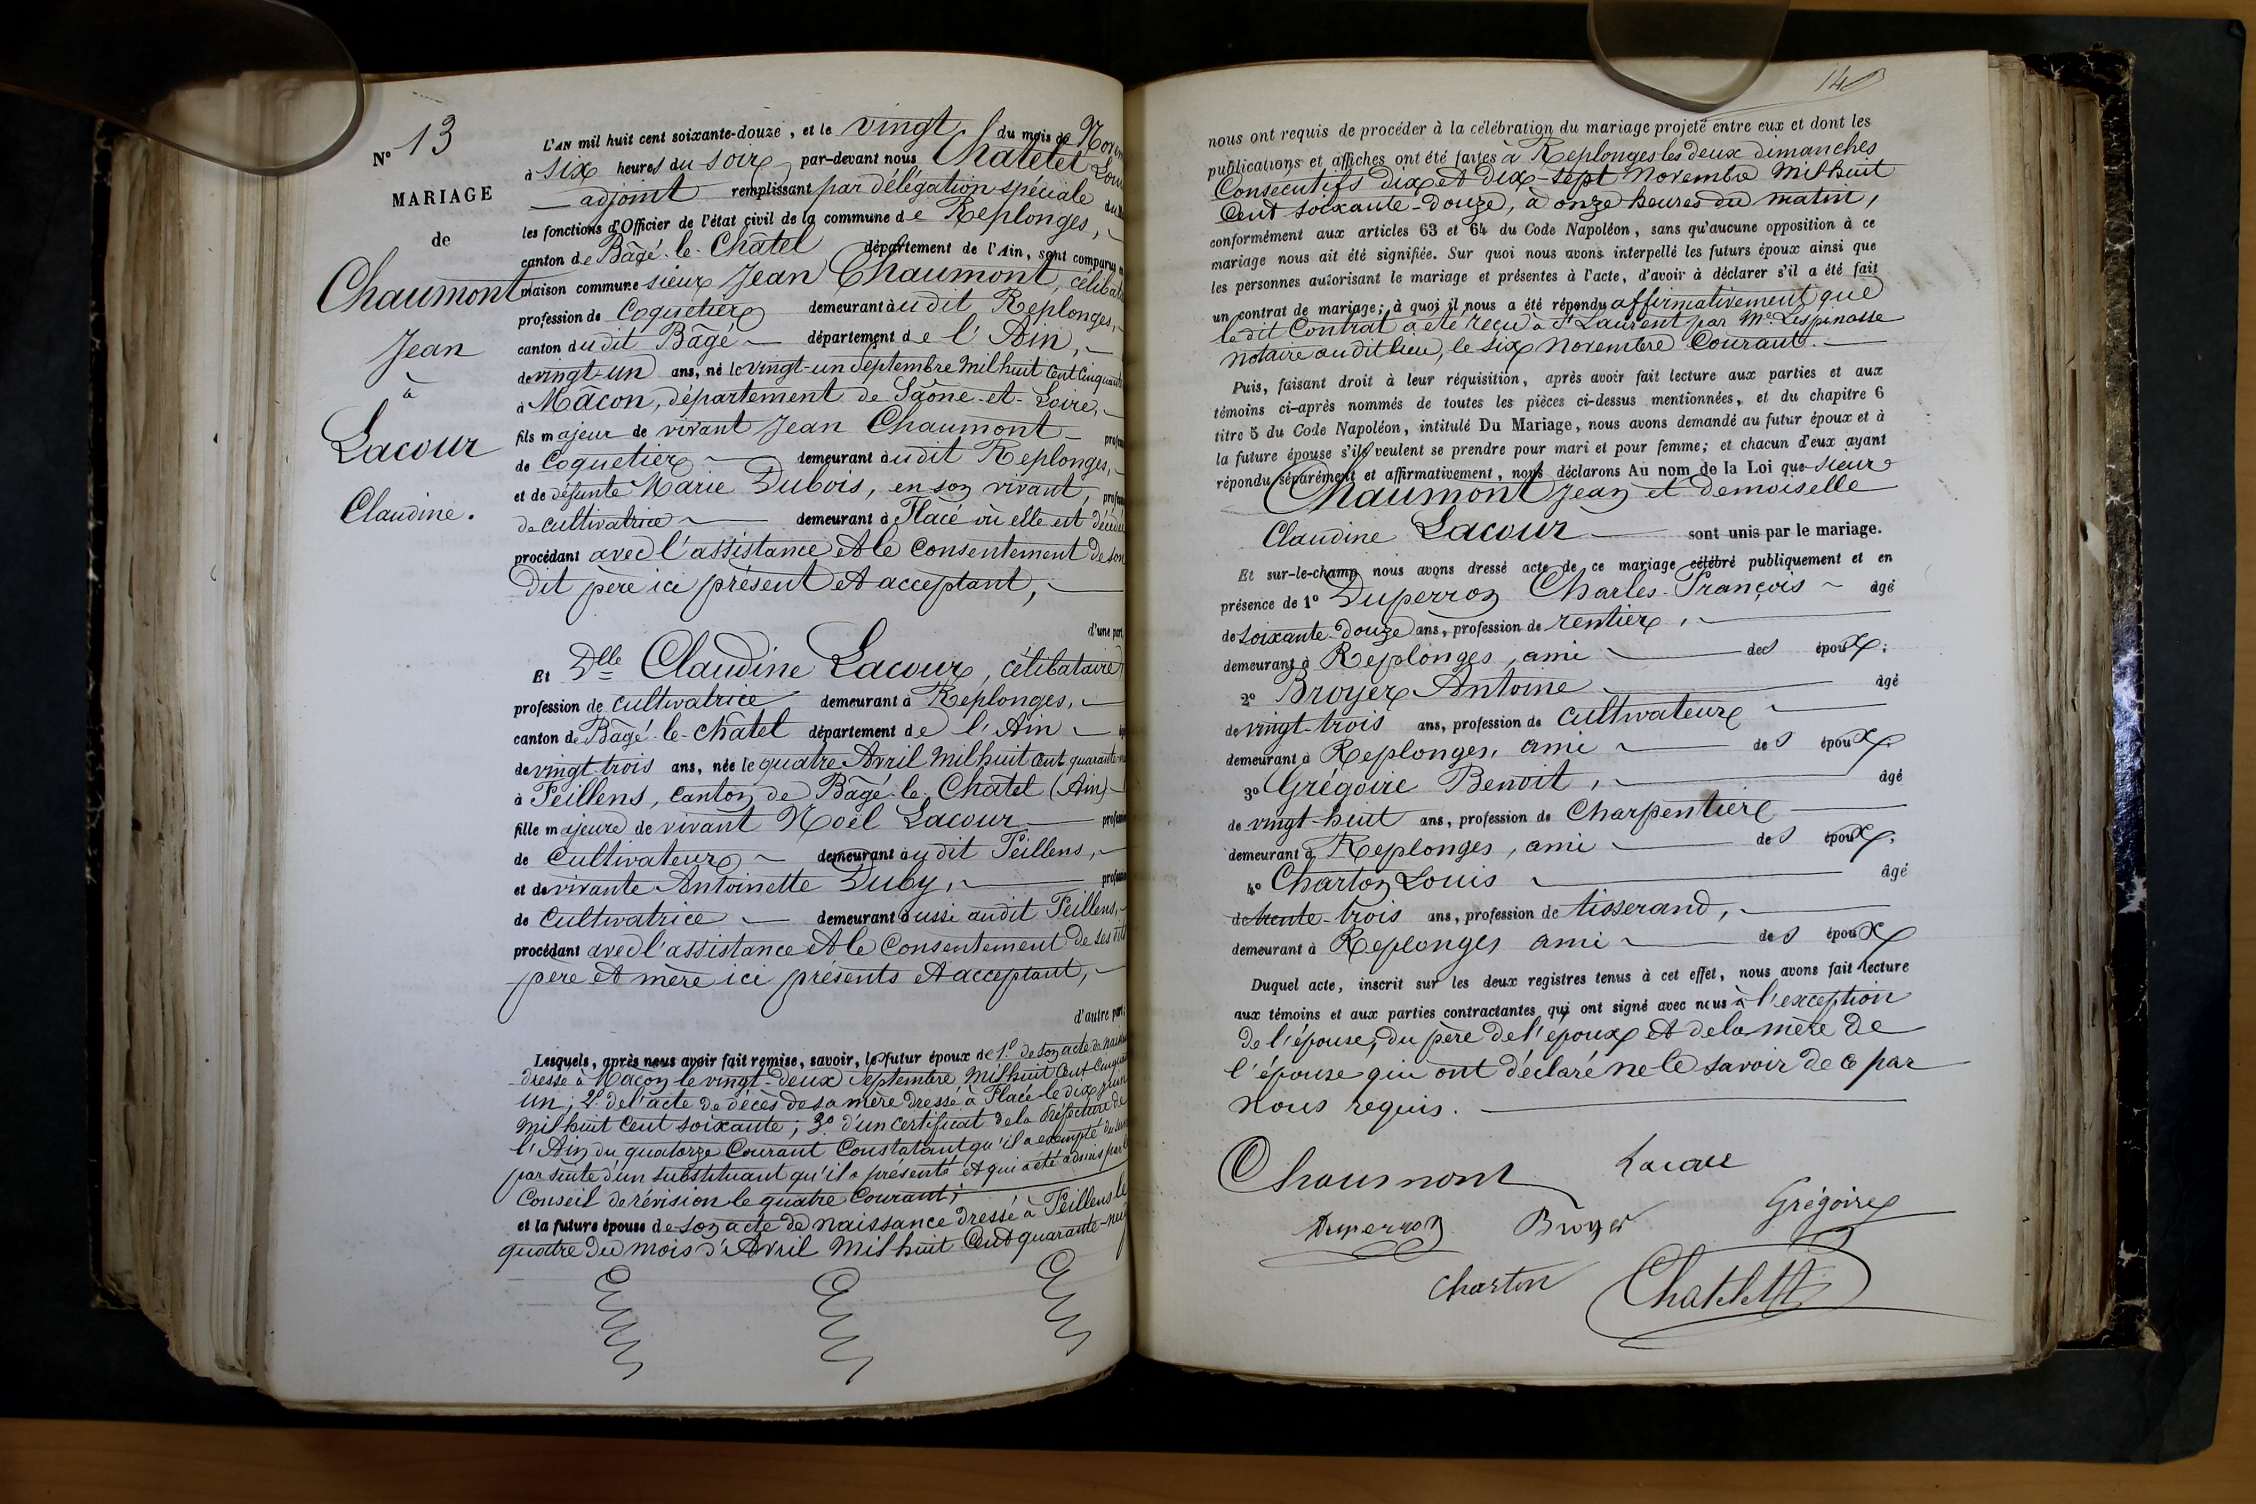 N° 13
MARIAGE
de
Chaumont
Jean
à
Lacour
Claudine.
L'AN mil huit cent soixante-douze, et le vingt du mois de Novem
à six heures du soir par-devant nous Chatelet Loui
adjoint remplissant par délégation spéciale du
les fonctions d'Officier de l'état civil de la commune de Replonges,
canton de Bâgé-le-Châtel département de l'Ain, sont comparus en
maison commune sieur Jean Chaumont, céliba
profession de Coquetier demeurant audit Replonges,
canton dudit Bâgé département de l'Ain,
de vingt-un ans, né le vingt-un Septembre mil huit cent cinquante
à Mâcon, département de Saône-et-Loire,
fils majeur de vivant Jean Chaumont profes
de Coquetier demeurant audit Replonges,
et de défunte Marie Dubois, en son vivant, profes
de cultivatrice demeurant à Flacé où elle est décéd
procédant avec l'assistance et le consentement de son
dit père ici présent et acceptant,
d'une part,
Et Dlle Claudine Lacour, célibataire
profession de cultivatrice demeurant à Replonges,
canton de Bâgé-le-Châtel département de l'Ain
de vingt-trois ans, née le quatre Avril mil huit cent quarante-
à Feillens, canton de Bâgé-le-Châtel (Ain)
fille majeure de vivant Noël Lacour profes
de Cultivateur demeurant audit Feillens,
et de vivante Antoinette Duby, profes
de Cultivatrice demeurant aussi audit Feillens,
procédant avec l'assistance et le Consentement de ses dits
père et mère ici présents et acceptant,
d'autre part;
Lesquels, après nous avoir fait remise, savoir, le futur époux de 1° de son acte de naiss
dressé à Mâcon le vingt-deux Septembre mil huit cent cinquan
un; 2° de l'acte de décès de sa mère dressé à Flacé le dix juin
mil huit cent soixante; 3° d'un certificat de la Préfecture de
l'Ain du quatorze Courant Constatant qu'il a exempté du
par suite d'un substituant qu'il a présenté et qui a été admis par le
Conseil de révision le quatre Courant;
et la future épouse de son acte de naissance dressé à Feillens le
quatre du mois d'Avril mil huit cent quarante-neuf
14
nous ont requis de procéder à la célébration du mariage projeté entre eux et dont les
publications et affiches ont été faites à Replonges les deux dimanches
Consécutifs dix et dix-sept Novembre mil huit
Cent soixante-douze, à onze heures du matin,
conformément aux articles 63 et 64 du Code Napoléon, sans qu'aucune opposition à ce
mariage nous ait été signifiée. Sur quoi nous avons interpellé les futurs époux ainsi que
les personnes autorisant le mariage et présentes à l'acte, d'avoir à déclarer s'il a été fait
un contrat de mariage; à quoi il nous a été répondu affirmativement que
le dit Contrat a été reçu à St Laurent par Me Lespinasse
notaire audit lieu, le six Novembre Courant.
Puis, faisant droit à leur réquisition, après avoir fait lecture aux parties et aux
témoins ci-après nommés de toutes les pièces ci-dessus mentionnées, et du chapitre 6
titre 5 du Code Napoléon, intitulé Du Mariage, nous avons demandé au futur époux et à
la future épouse s'ils veulent se prendre pour mari et pour femme; et chacun d'eux ayant
répondu séparément et affirmativement, nous déclarons Au nom de la Loi que sieur
Chaumont Jean et demoiselle
Claudine Lacour sont unis par le mariage.
Et sur-le-champ nous avons dressé acte de ce mariage célébré publiquement et en
présence de 1° Duperron Charles-François âgé
de soixante-douze ans, profession de rentier,
demeurant à Replonges, ami des époux;
2° Broyer Antoine âgé
de vingt-trois ans, profession de cultivateur
demeurant à Replonges, ami des époux;
3° Grégoire Benoit, âgé
de vingt-huit ans, profession de Charpentier
demeurant à Replonges, ami des époux;
4° Charton Louis âgé
de trente-trois ans, profession de tisserand,
demeurant à Replonges ami des époux
Duquel acte, inscrit sur les deux registres tenus à cet effet, nous avons fait lecture
aux témoins et aux parties contractantes qui ont signé avec nous à l'exception
de l'épouse, du père de l'époux et de la mère de
l'épouse qui ont déclaré ne le savoir de ce par
nous requis.
Chaumont Lacour
Duperron Broyer Grégoire
Charton Chatelet